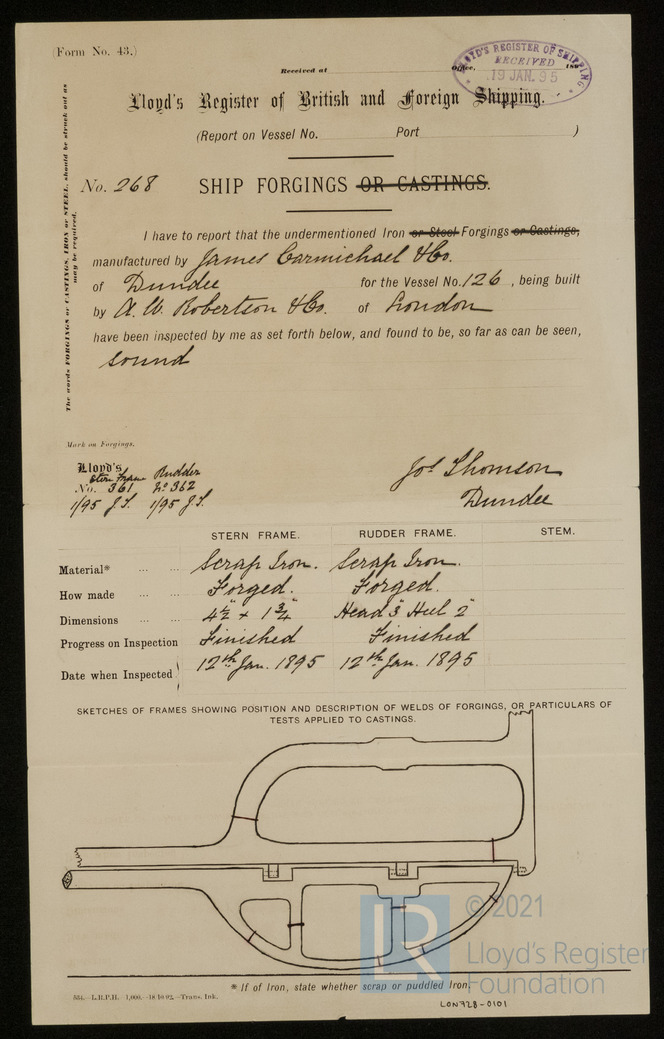 (Form No. 43.)
Received at Office, 189
LLOYD'S REGISTER OF SHIPPING
RECEIVED
19 JAN. 95
Lloyd's Register of British and Foreign Shipping.
(Report on Vessel No. Port )
No. 268 SHIP FORGINGS OR CASTINGS.
The words FORGINGS or CASTINGS, IRON or STEEL, should be struck out as
may be required.
I have to report that the undermentioned Iron or Steel Forgings or Castings,
manufactured by James Carmichael & Co.
of Dundee for the Vessel No. 126, being built
by A. W. Robertson & Co. of London
have been inspected by me as set forth below, and found to be, so far as can be seen,
sound
Mark on Forgings.
Lloyd's
Stern frame Rudder
No. 361 No 362
1/95 J.T. 1/95 J.T.
Jos Thomson
Dundee
STERN FRAME. RUDDER FRAME. STEM.
Material* ... ... Scrap Iron. Scrap Iron.
How made ... ... Forged. Forged.
Dimensions ... ... 4½" x 1¾" Head 3" Heel 2"
Progress on Inspection Finished Finished
Date when Inspected 12th Jan. 1895 12th Jan. 1895
SKETCHES OF FRAMES SHOWING POSITION AND DESCRIPTION OF WELDS OF FORGINGS, OR PARTICULARS OF
TESTS APPLIED TO CASTINGS.
© 2021
LR
Lloyd's Register
Foundation
* If of Iron, state whether scrap or puddled Iron.
554.—L.R.P.H. 1,000.—18.10.92.—Trans. Ink.
LON728-0101